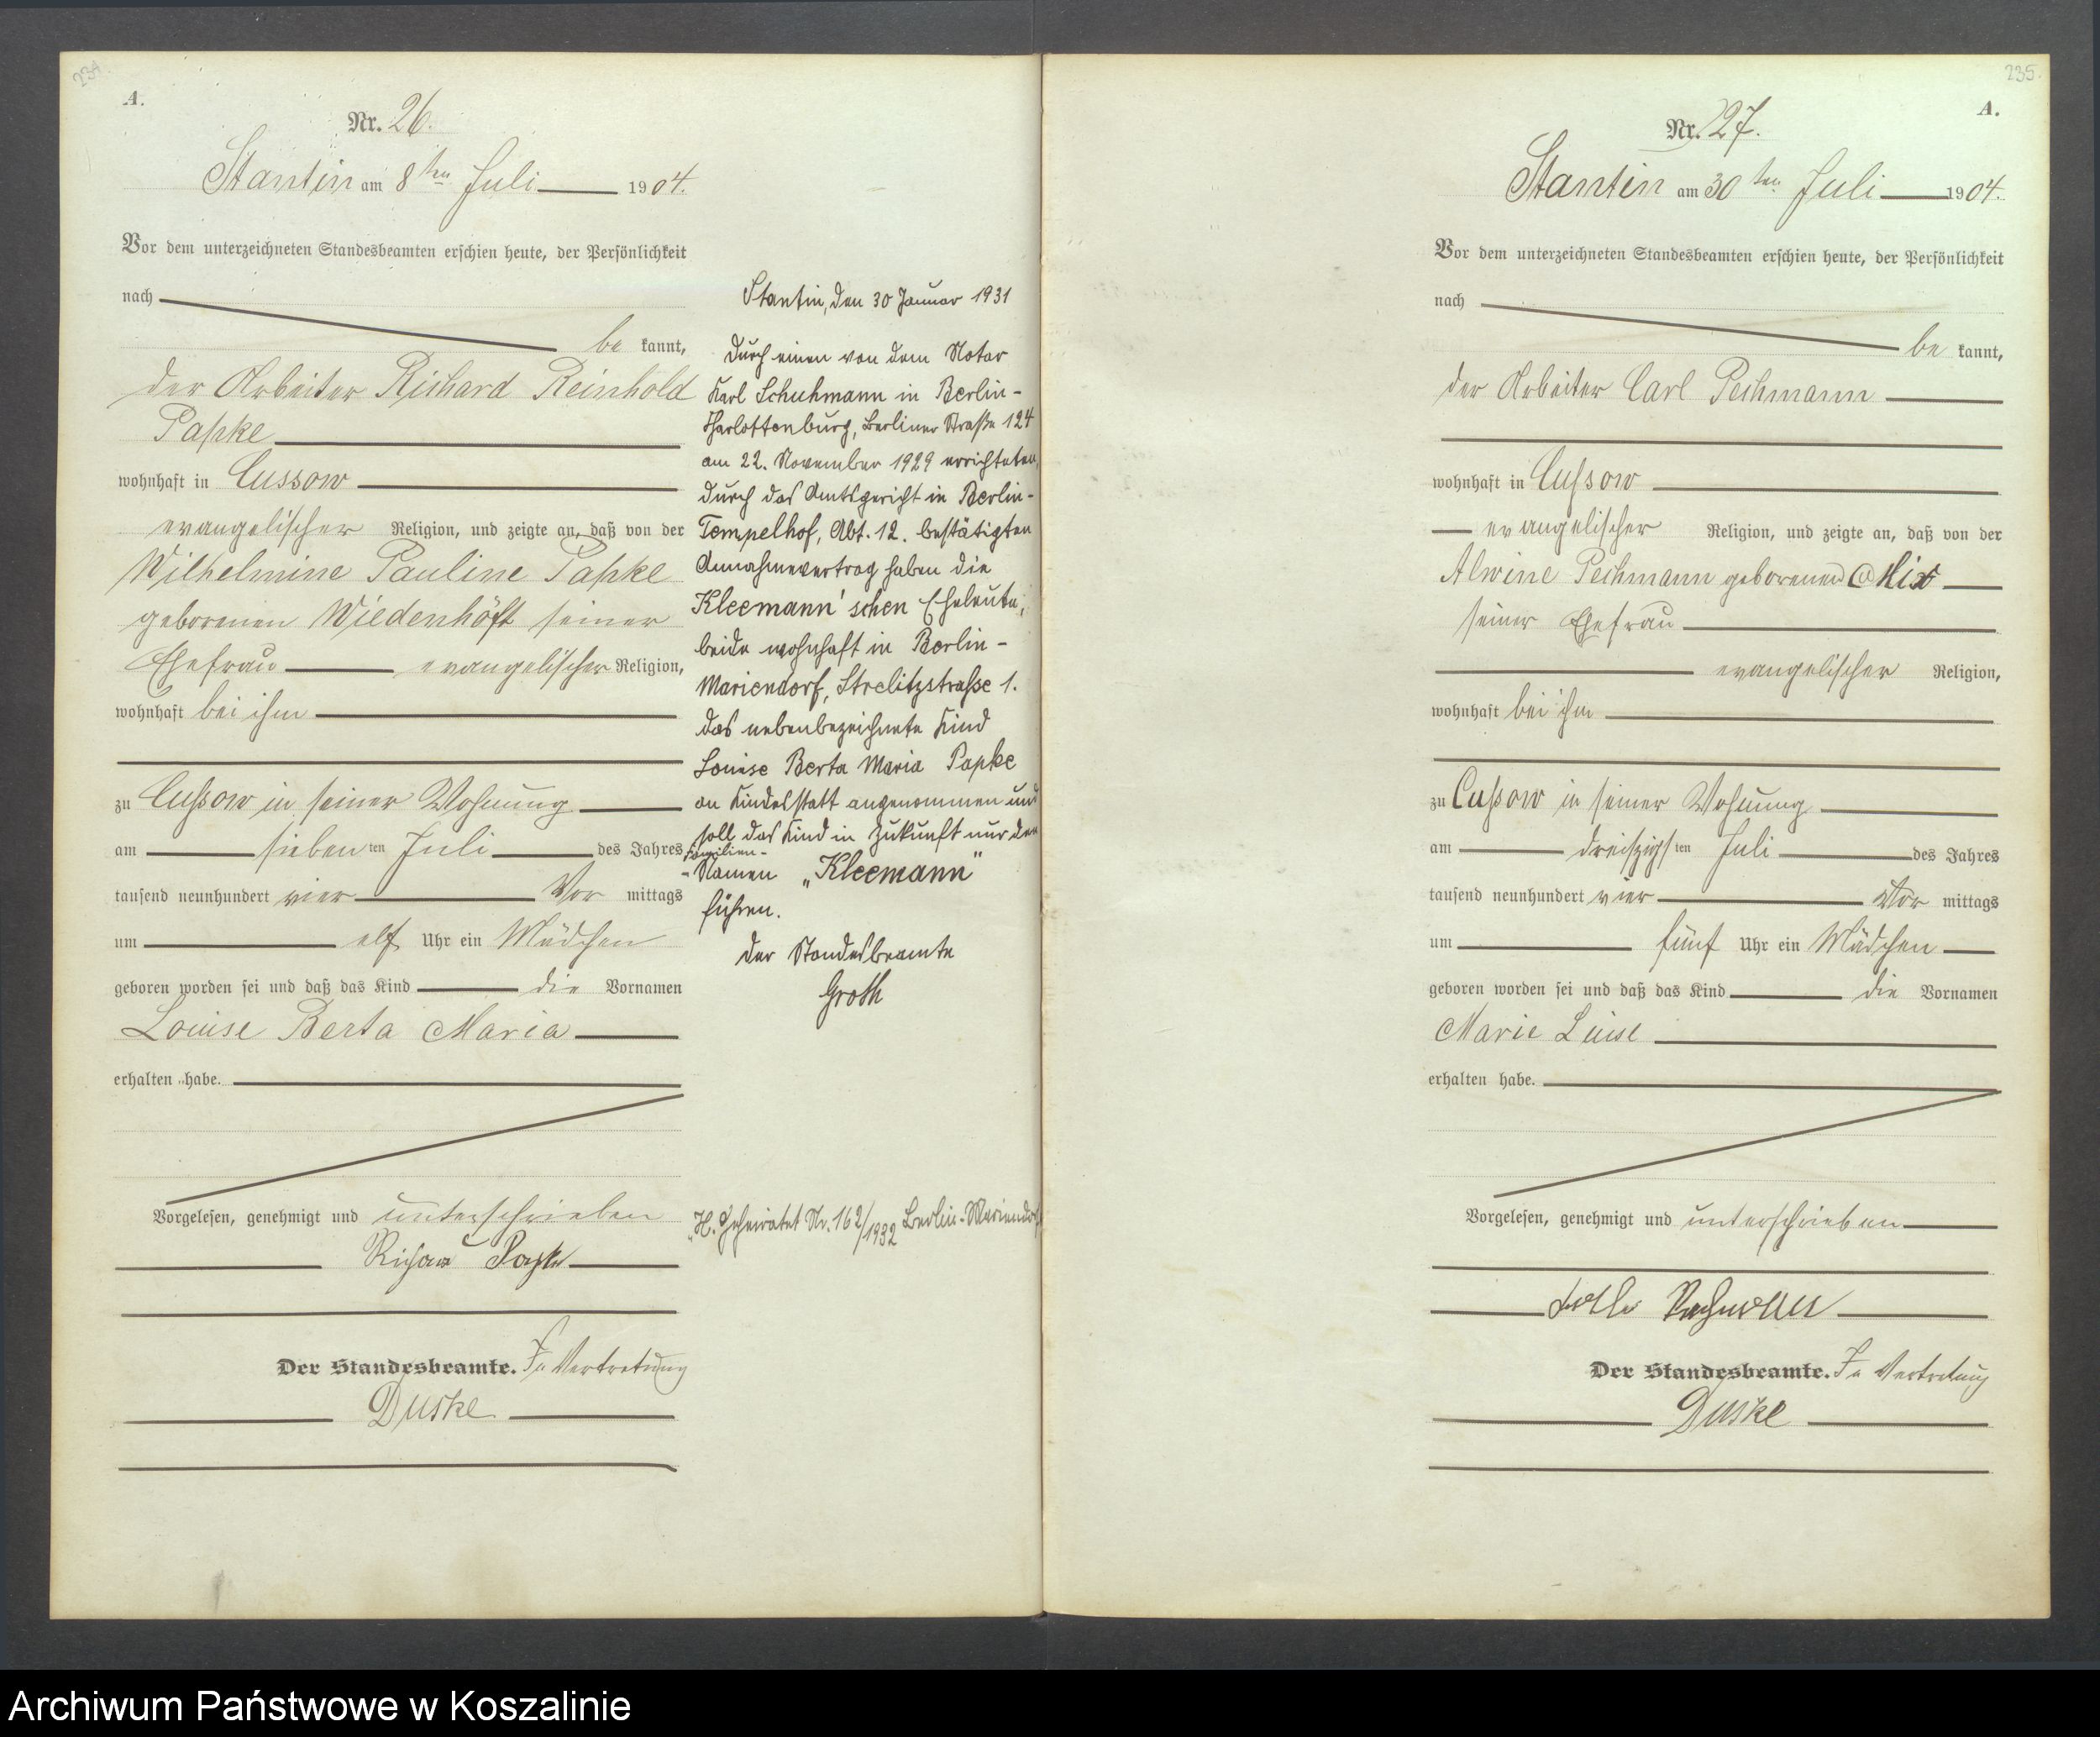 234.
A.
Nr. 26.
Stantin am 8ten Juli 1904.
Vor dem unterzeichneten Standesbeamten erschien heute, der Persönlichkeit
nach
be kannt,
der Arbeiter Richard Reinhold
Papke
wohnhaft in Cussow
evangelischer Religion, und zeigte an, daß von der
Wilhelmine Pauline Papke
geborenen Wiedenhöft seiner
Ehefrau evangelischer Religion,
wohnhaft bei ihm
zu Cussow in seiner Wohnung
am siebenten Juli des Jahres
tausend neunhundert vier Vor mittags
um elf Uhr ein Mädchen
geboren worden sei und daß das Kind die Vornamen
Louise Berta Maria
erhalten habe.
Vorgelesen, genehmigt und unterschrieben
Richard Papke
Der Standesbeamte. In Vertretung
Duske
Stantin, den 30 Januar 1931
Durch einen von dem Notar
Karl Schuhmann in Berlin-
Charlottenburg, Berliner Straße 124
am 22. November 1929 errichteten,
durch das Amtsgericht in Berlin-
Tempelhof, Abt. 12. bestätigten
Annahmevertrag haben die
Kleemann'schen Eheleute,
beide wohnhaft in Berlin-
Mariendorf, Strelitzstrasse 1.
das nebenbezeichnete Kind
Louise Berta Maria Papke
an Kindesstatt angenommen und
soll das Kind in Zukunft nur den
Familien-
-Namen „Kleemann"
führen.
Der Standesbeamte
Groth
H. Geheiratet Nr. 162/1932 Berlin-Mariendorf
235.
A.
Nr. 27.
Stantin am 30ten Juli 1904.
Vor dem unterzeichneten Standesbeamten erschien heute, der Persönlichkeit
nach
be kannt,
der Arbeiter Carl Pechmann
wohnhaft in Cussow
evangelischer Religion, und zeigte an, daß von der
Alwine Pechmann geborenen Mix
seiner Ehefrau
evangelischer Religion,
wohnhaft bei ihm
zu Cussow in seiner Wohnung
am dreiszigsten Juli des Jahres
tausend neunhundert vier Vor mittags
um fünf Uhr ein Mädchen
geboren worden sei und daß das Kind die Vornamen
Marie Luise
erhalten habe.
Vorgelesen, genehmigt und unterschrieben
Der Standesbeamte. In Vertretung
Duske
Archiwum Państwowe w Koszalinie